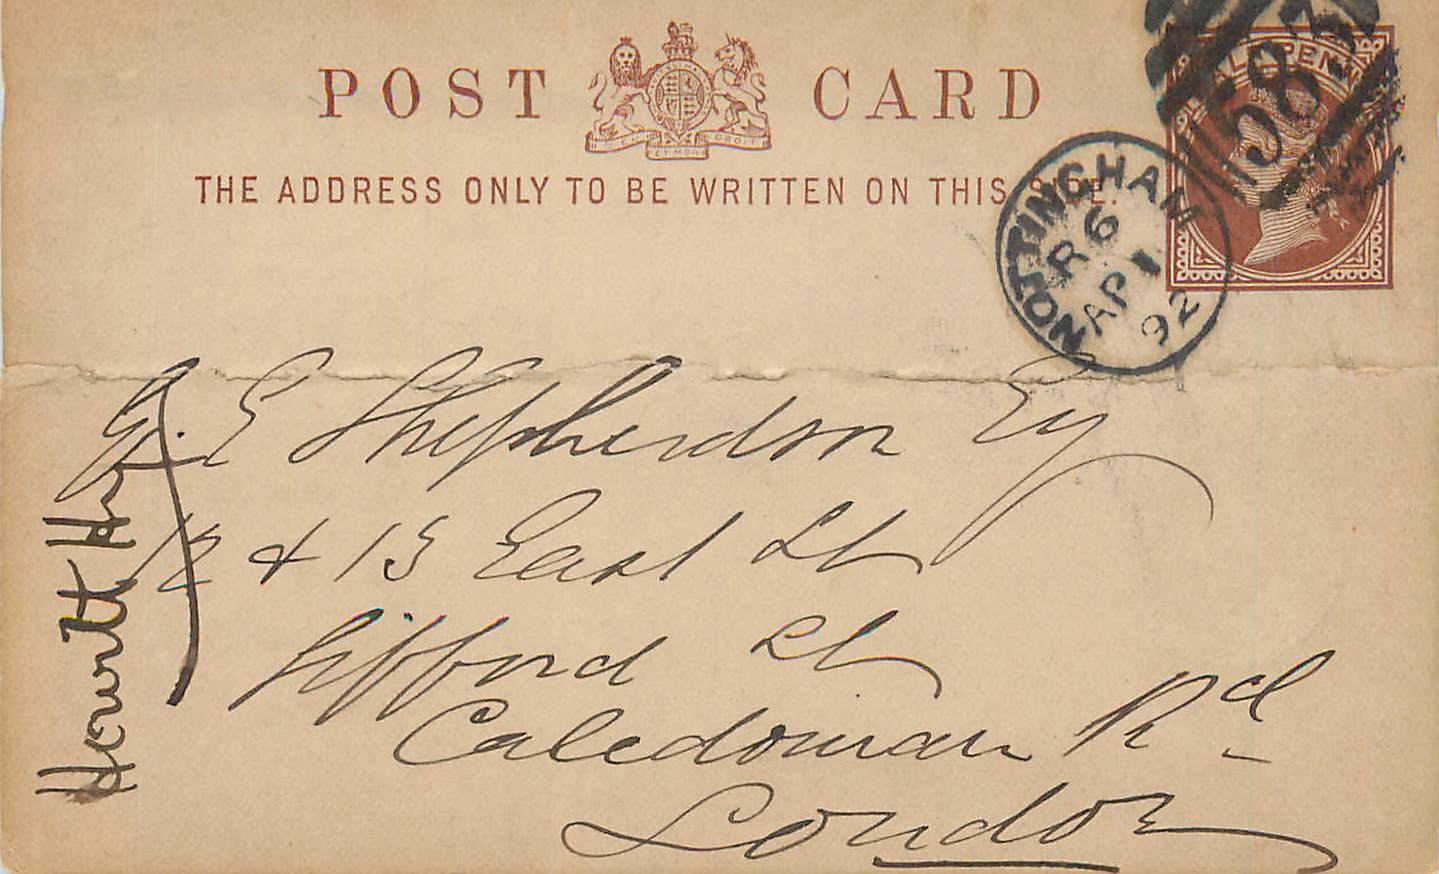 POST CARD
THE ADDRESS ONLY TO BE WRITTEN ON THIS SIDE.
HALFPENNY
583
NOTTINGHAM
R 6
AP 1
92
G. E Shepherdson Esq
12 & 13 East St
Gifford St
Caledonian Rd
London
Howitt